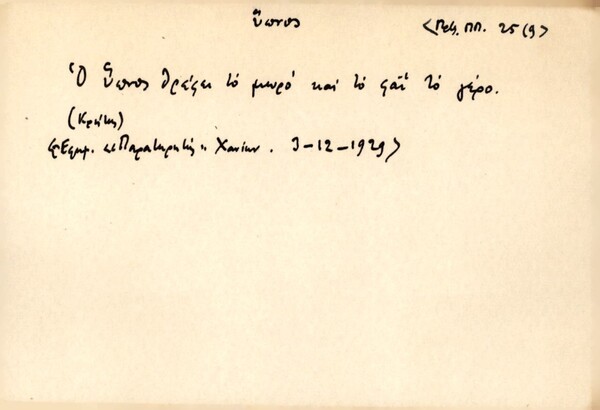 ὕπνος
<Πετ. ΠΠ. 25 (9>
Ὁ ὕπνος θρέφει τὸ μωρό καὶ τὸ φαῒ τὸ γέρο.
(Κρήτης)
<Ἐφημ. «Παρατηρητής» Χανίων. 3-12-1929>